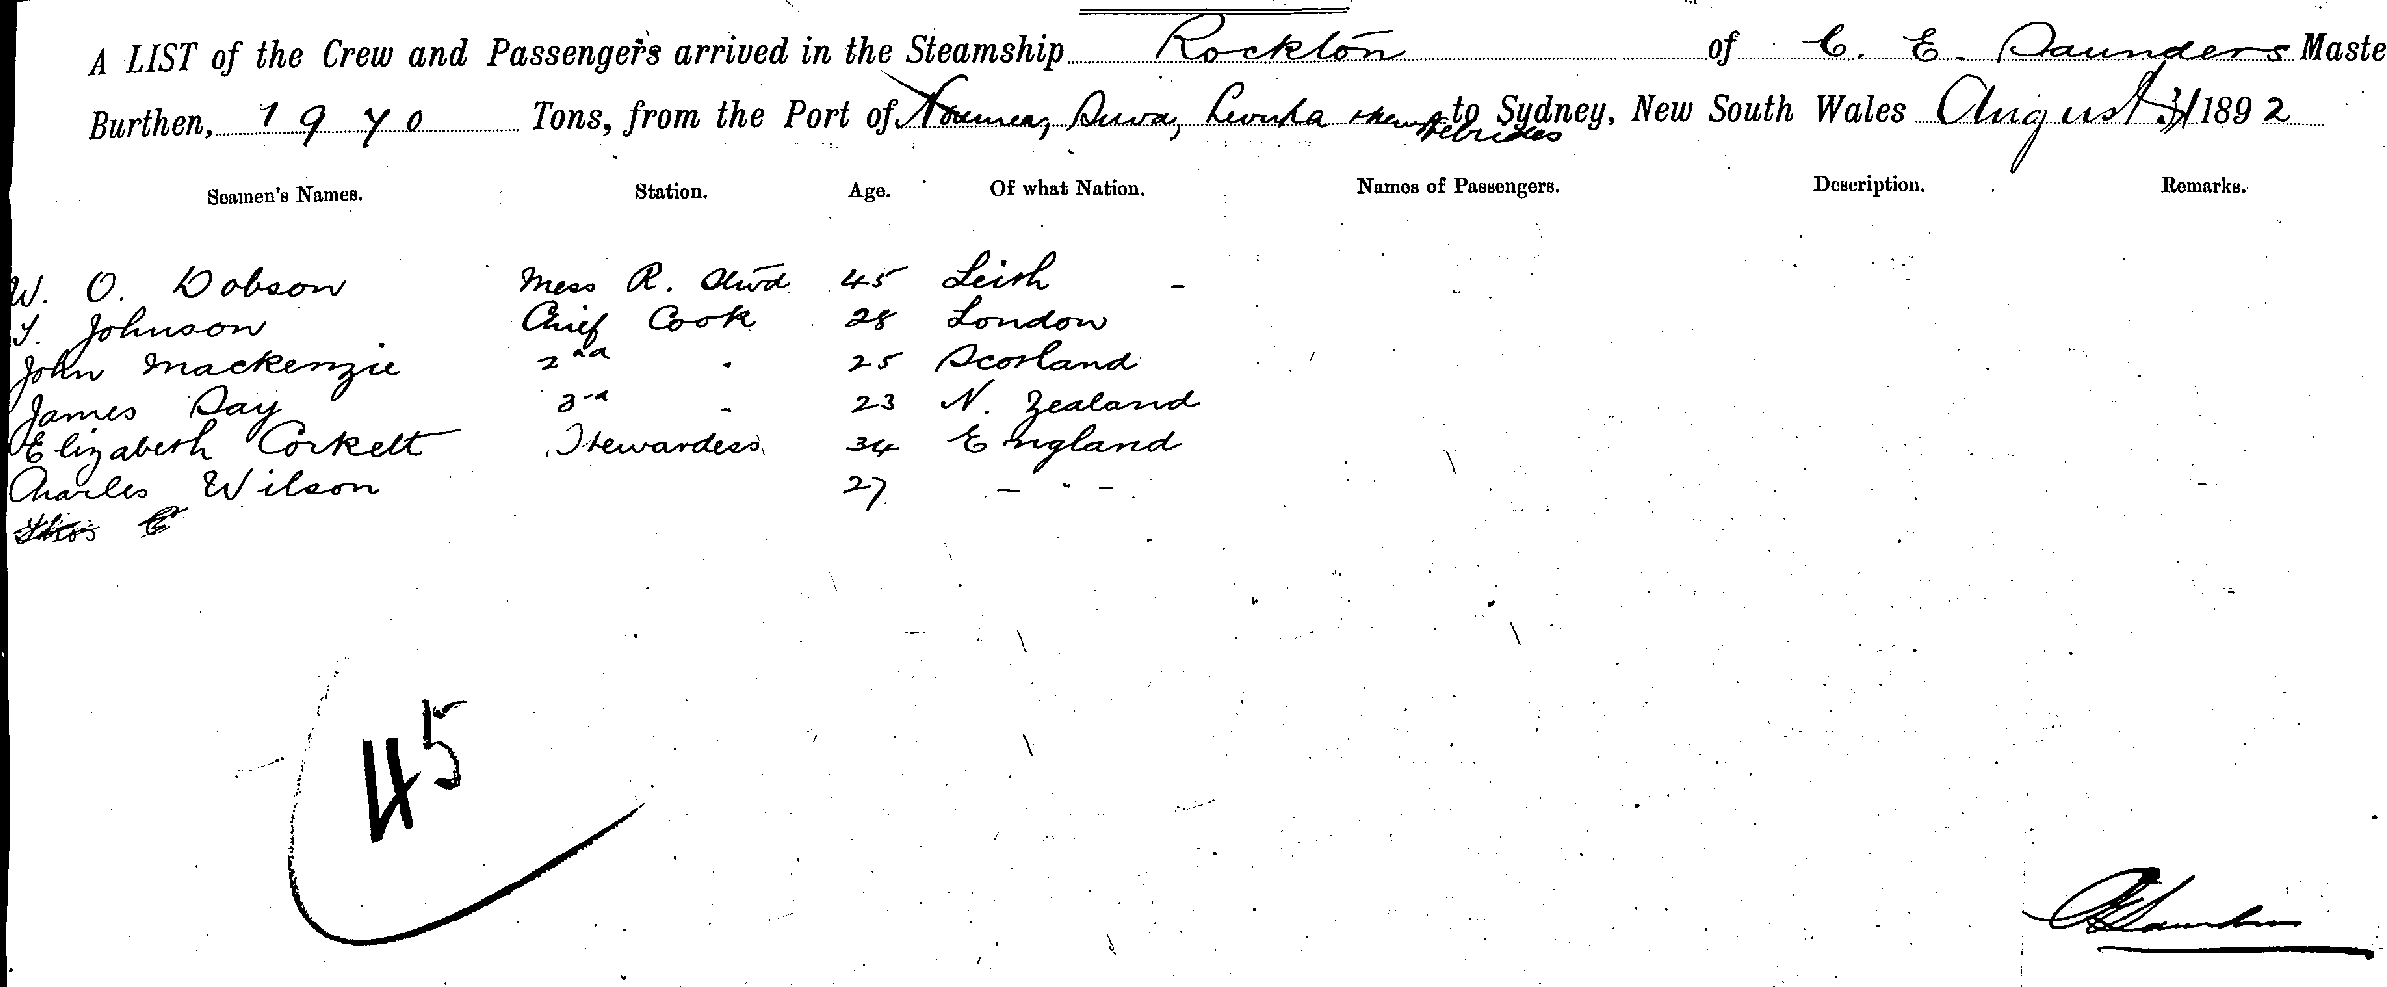 A LIST of the Crew and Passengers arrived in the Steamship Rockton of C. E. Saunders Maste
Burthen, 1970 Tons, from the Port of Noumea, Suva, Levuka & New Hebrides to Sydney, New South Wales August 31 1892
Seamen's Names. Station. Age. Of what Nation. Names of Passengers. Description. Remarks.
W. O. Dobson Mess R. Stwd 45 Leith -
T. Johnson Chief Cook 28 London
John Mackenzie 2nd " 25 Scotland
James Day 3rd " 23 N. Zealand
Elizabeth Corkett Stewardess 34 England
Charles Wilson 27 - " -
Thos C
45
C E Saunders